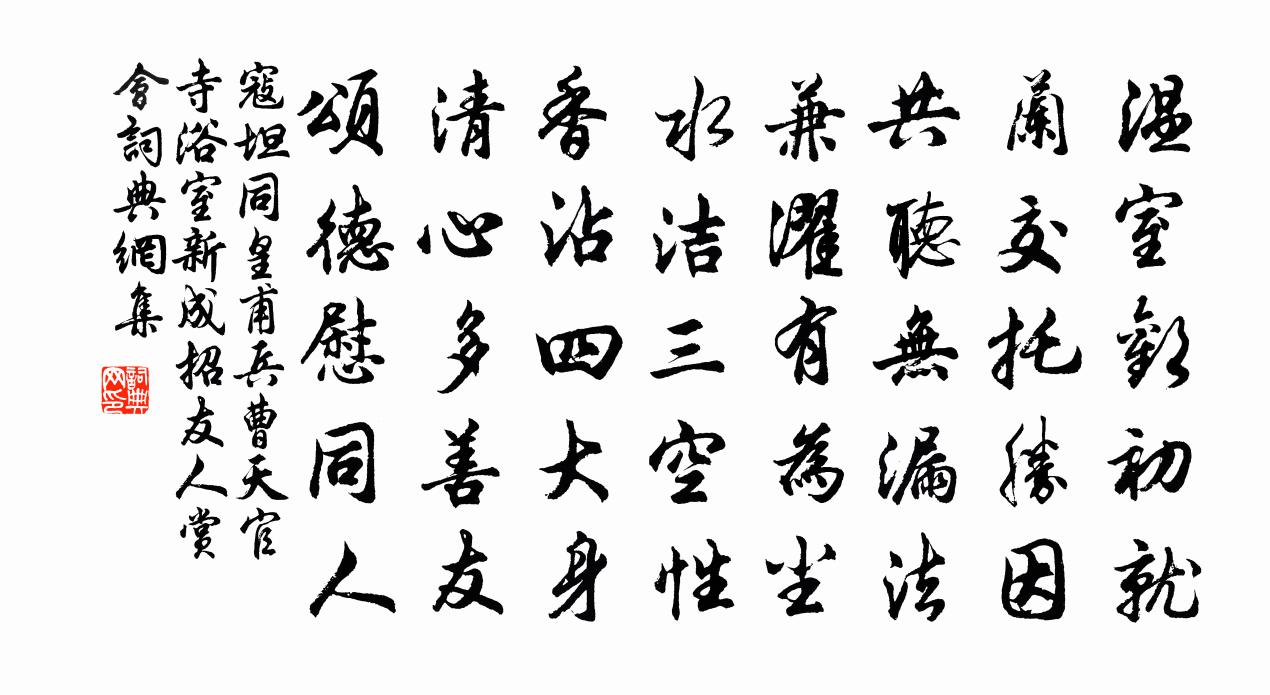 温室歡初就
蘭交托勝因
共聽無漏法
兼濯有為尘
水洁三空性
香沾四大身
清心多善友
頌德慰同人
寇坦同皇甫兵曹天官
寺浴室新成招友人賞
會詞典網集
詞典
网印